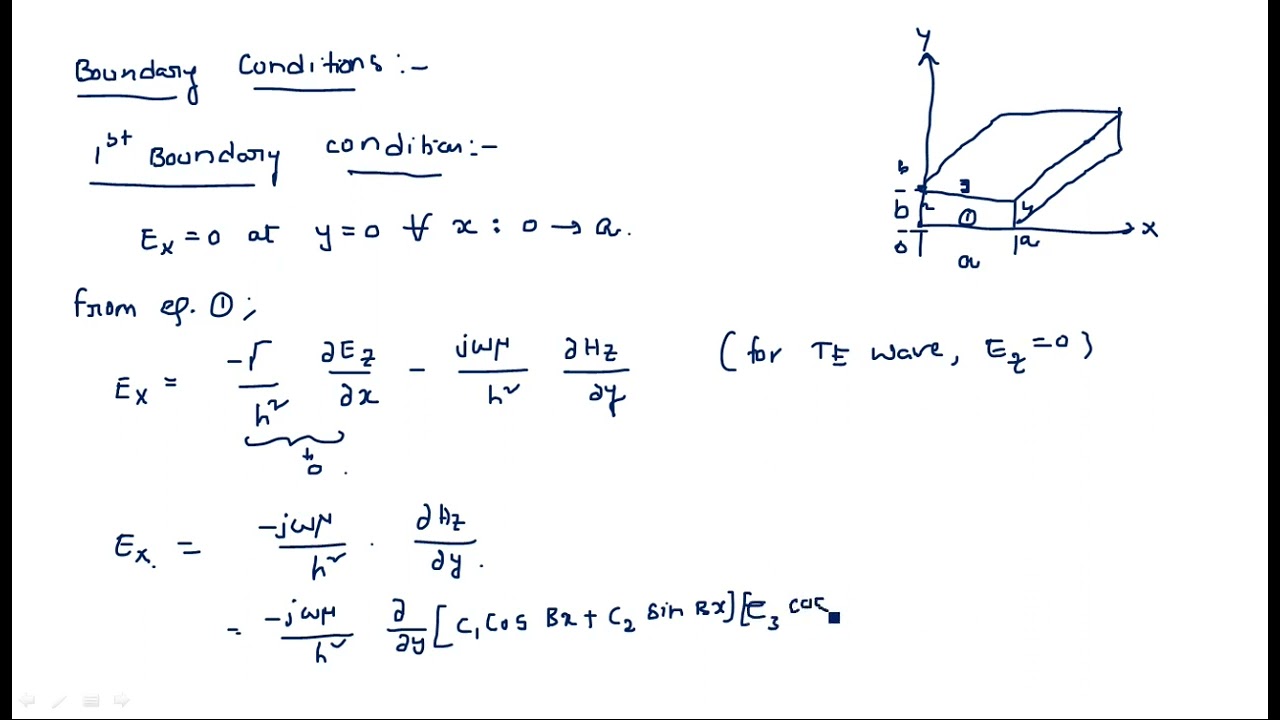 Boundary Conditions :-
1st Boundary condition:-
Ex = 0 at y = 0 ∀ x : 0 → a.
from eq. ①;
Ex = -Γ/h² ∂Ez/∂x - jωμ/h² ∂Hz/∂y (for TE wave, Ez = 0)
0
Ex = -jωμ/h² · ∂Hz/∂y.
= -jωμ/h² ∂/∂y [C1 Cos Bx + C2 Sin Bx] [C3 cos
y
b
3
b 2 ① 4
0 a x
a